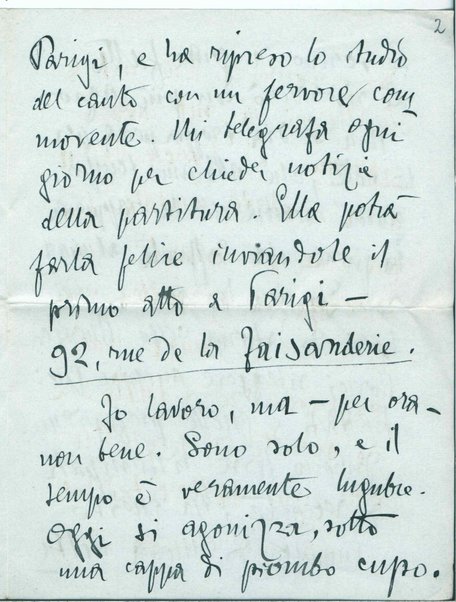 2
Parigi, e ha ripreso lo studio
del canto con un fervore com
movente. Mi telegrafa ogni
giorno per chieder notizie
della partitura. Ella potrà
farla felice inviandole il
primo atto a Parigi –
92, rue de la Faisanderie.
Io lavoro, ma – per ora –
non bene. Sono solo, e il
tempo è veramente lugubre.
Oggi si agonizza, sotto
una cappa di piombo cupo.